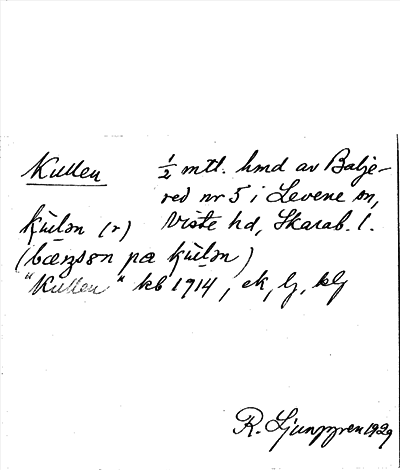 Kullen ½ mtl. hmd av Balje-
red nr 5 i Levene sn,
ku̇lən (r) Viste hd, Skarab. l.
(bærgson pa ku̇lən)
"Kullen" kb 1914, ek, lj, klj
R. Ljunggren 1929